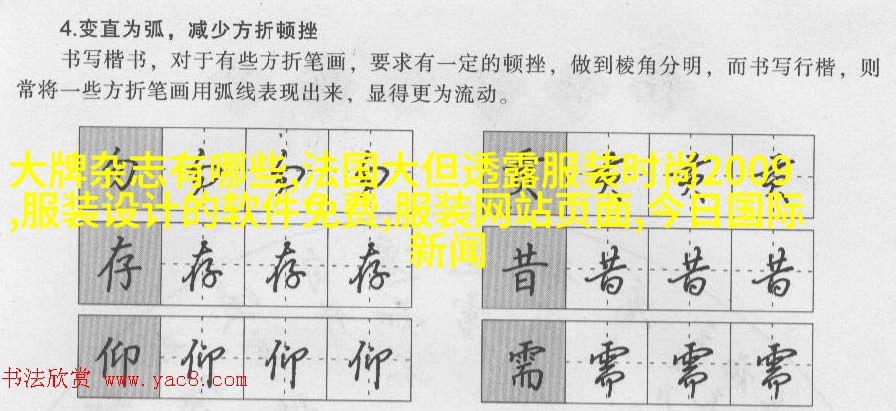 4.变直为弧，减少方折顿挫
书写楷书，对于有些方折笔画，要求有一定的顿挫，做到棱角分明，而书写行楷，则
常将一些方折笔画用弧线表现出来，显得更为流动。
大牌杂志有哪些,法国大但透露服装时尚2009
,服装设计的软件免费,服装网站页面,今日国际
新闻
存 存 存 存 昔 昔 昔 昔
仰 仰 仰 仰 需 需 需 需
书法欣赏 www.yac8.com